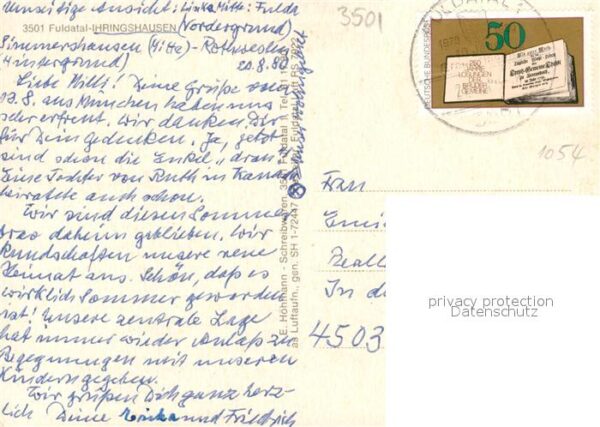 Umseitige Ansicht: Links Mitte: Fulda
3501 Fuldatal-IHRINGSHAUSEN (Vordergrund)
Simmershausen (Mitte) - Rothwesten
(Hintergrund) 20.8.80
Liebe Milli! Deine Grüße vom
12.8. aus München haben uns
sehr erfreut. Wir danken Dir
für Dein Gedenken. Ja, jetzt
sind schon die Enkel „dran".
Eine Tochter von Ruth in Kanada
heiratete auch schon.
Wir sind diesen Sommer
brav daheim geblieben. Wir
kundschaften unsere neue
Heimat aus. Schön, daß es
wirklich Sommer geworden
ist! Unsere zentrale Lage
hat immer wieder Anlaß zu
Begegnungen mit unseren
Kindern gegeben.
Wir grüßen Dich ganz herz-
lich Deine Erika und Friedrich
E. Höhmann - Schreibwaren, 3501 Fuldatal 1, Tel.
als Luftaufn., gen. SH 1-72447
3501
FULDATAL 1
DEUTSCHE BUNDESPOST
50
250 JAHRE
LOSUNGEN
DER
BRÜDER-
GEMEINE
1054
Frau
In de
4503
privacy protection
Datenschutz